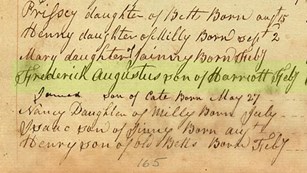 Prissey daughter of Bett Born augt 15
Henry daughter of Milly Born Sept 2
Mary daughter of Jainny Born Feby
Frederick Augustus son of Harriott Feby
James son of Cate Born May 27
Nancy Daughter of Milly Born July
Isaac son of Jinney Born augt
Henry son of old Betts Born Feby
165